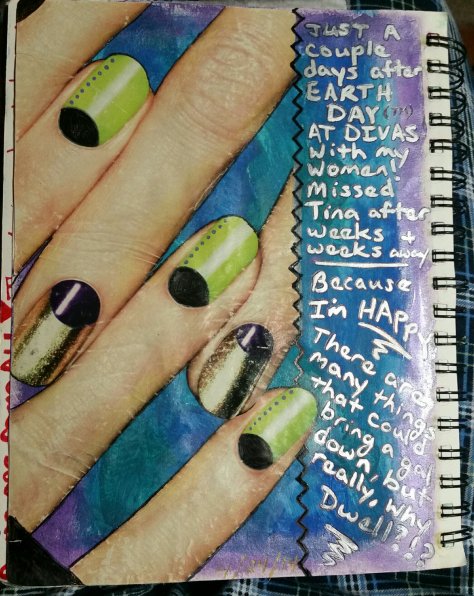 JUST A
couple
days after
EARTH
DAY (TM)
AT DIVAS
with my
women!
Missed
Tina after
weeks +
weeks away
Because
I'm HAPPY
There are
many things
that could
bring a gal
down, but
really, why
Dwell?!?